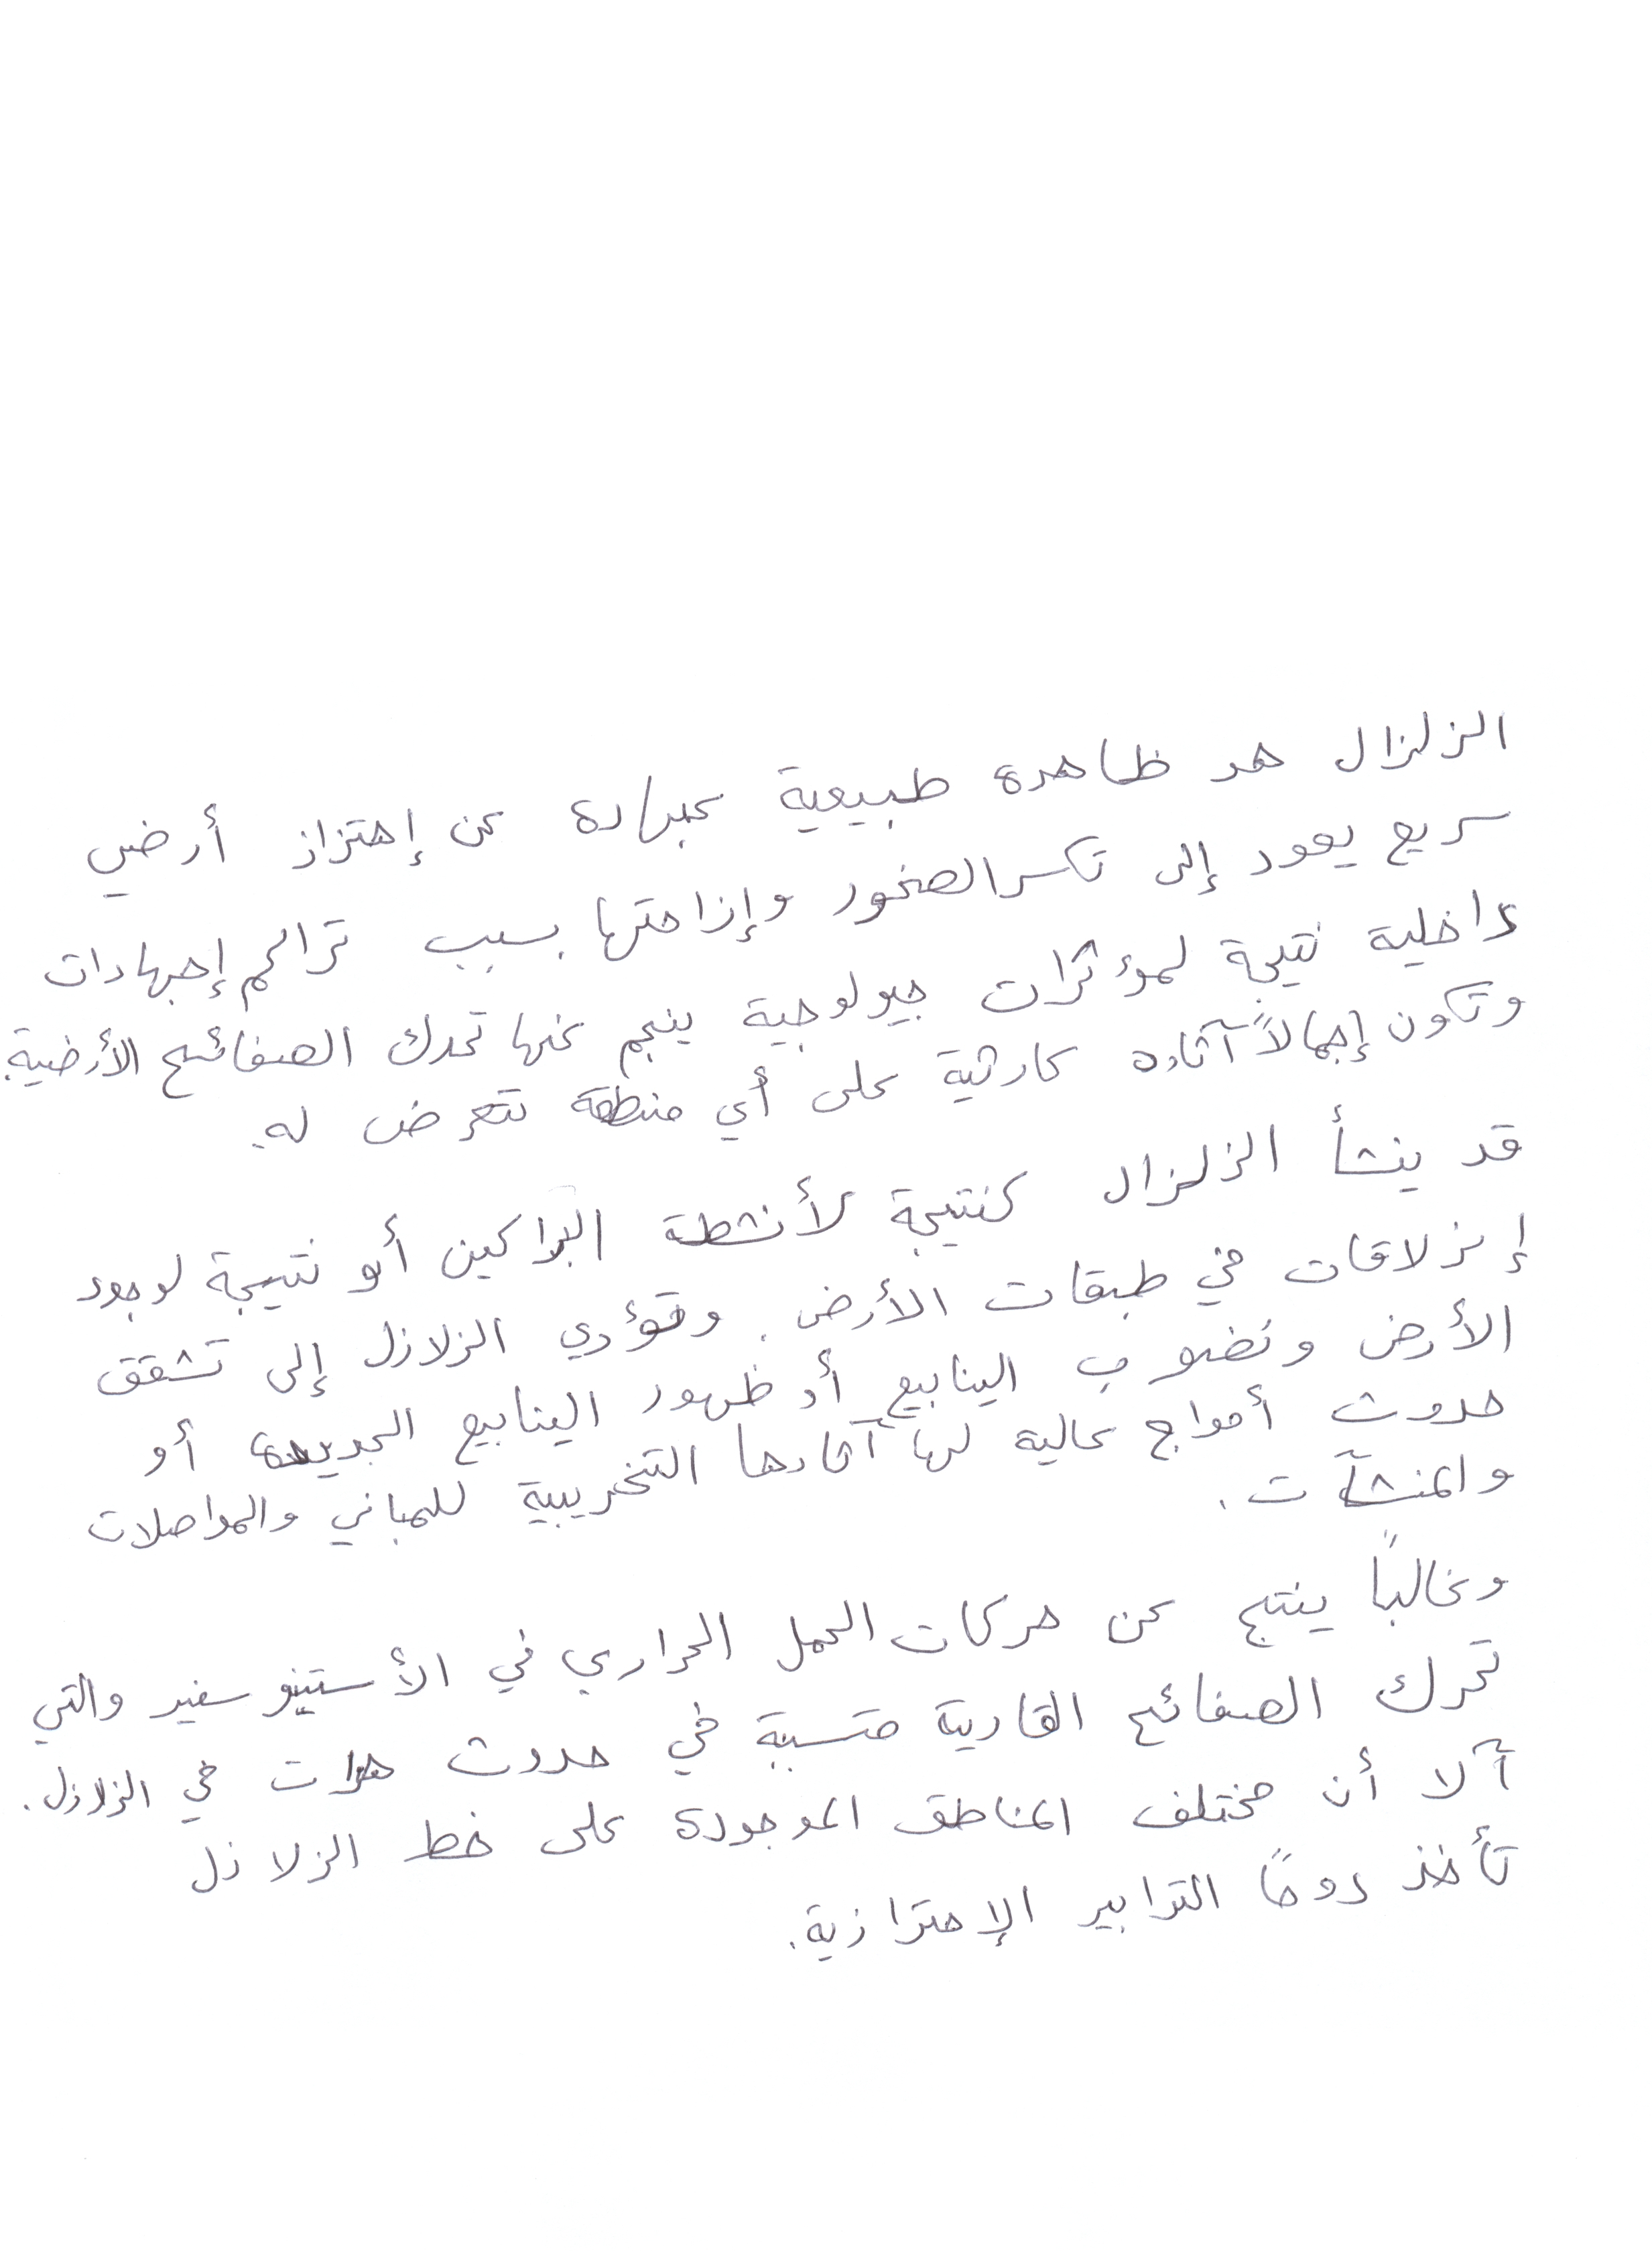 الزلزال هو ظاهرة طبيعية عبارة عن إهتزاز أرضي
سريع يعود إلى تكسر الصخور وإزاحتها بسبب تراكم إجهادات
داخلية نتيجة لمؤثرات جيولوجية ينجم عنها تحرك الصفائح الأرضية.
وتكون إجمالاً آثاره كارثية على أي منطقة تتعرض له.
قد ينشأ الزلزال كنتيجة لأنشطة البراكين أو نتيجة لوجود
إنزلاقات في طبقات الأرض. وتؤدي الزلازل إلى تشقق
الأرض ونضوب الينابيع أو ظهور الينابيع الجديدة أو
حدوث أمواج عالية لها آثارها التخريبية للمباني والمواصلات
والمنشآت.
وغالباً ينتج عن حركات الحمل الحراري في الأستينوسفير والتي
تحرك الصفائح القارية متسببة في حدوث هزات في الزلازل.
آلا أن مختلف المناطق الموجودة على خط الزلازل
تأخذ دوماً التدابير الإحترازية.